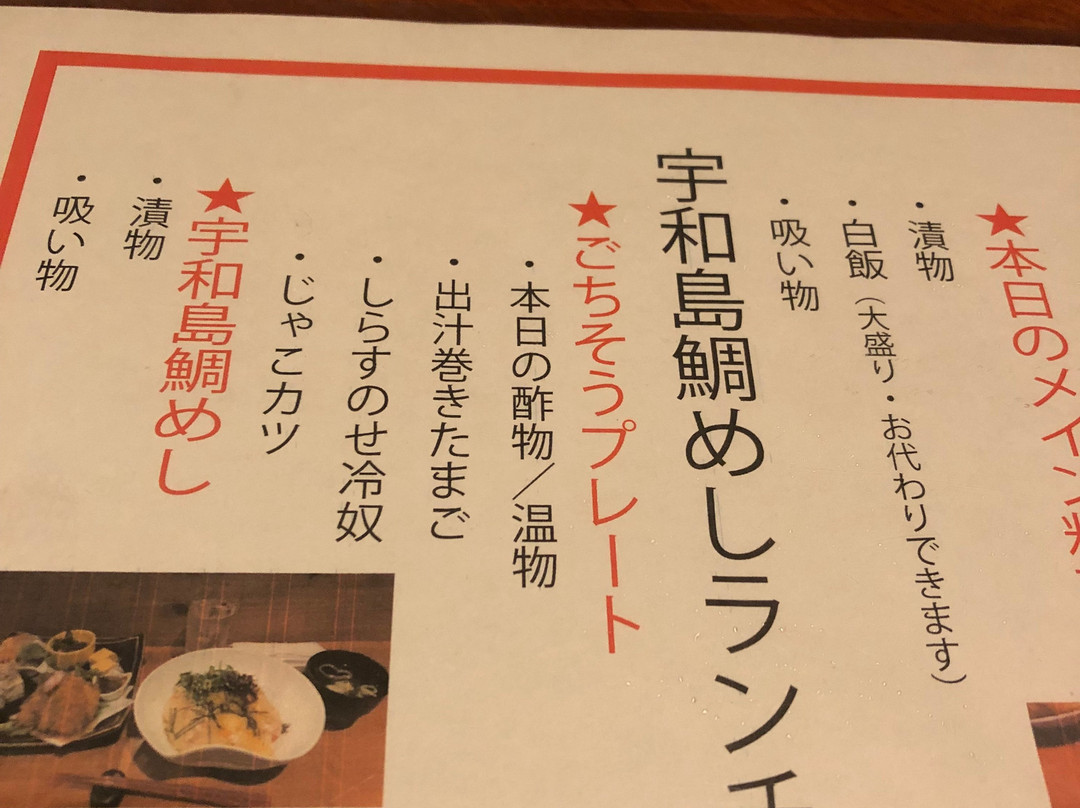 ★本日のメイン料
・漬物
・白飯（大盛り・お代わりできます）
・吸い物
宇和島鯛めしラン
★ごちそうプレート
・本日の酢物／温物
・出汁巻きたまご
・しらすのせ冷奴
・じゃこカツ
★宇和島鯛めし
・漬物
・吸い物